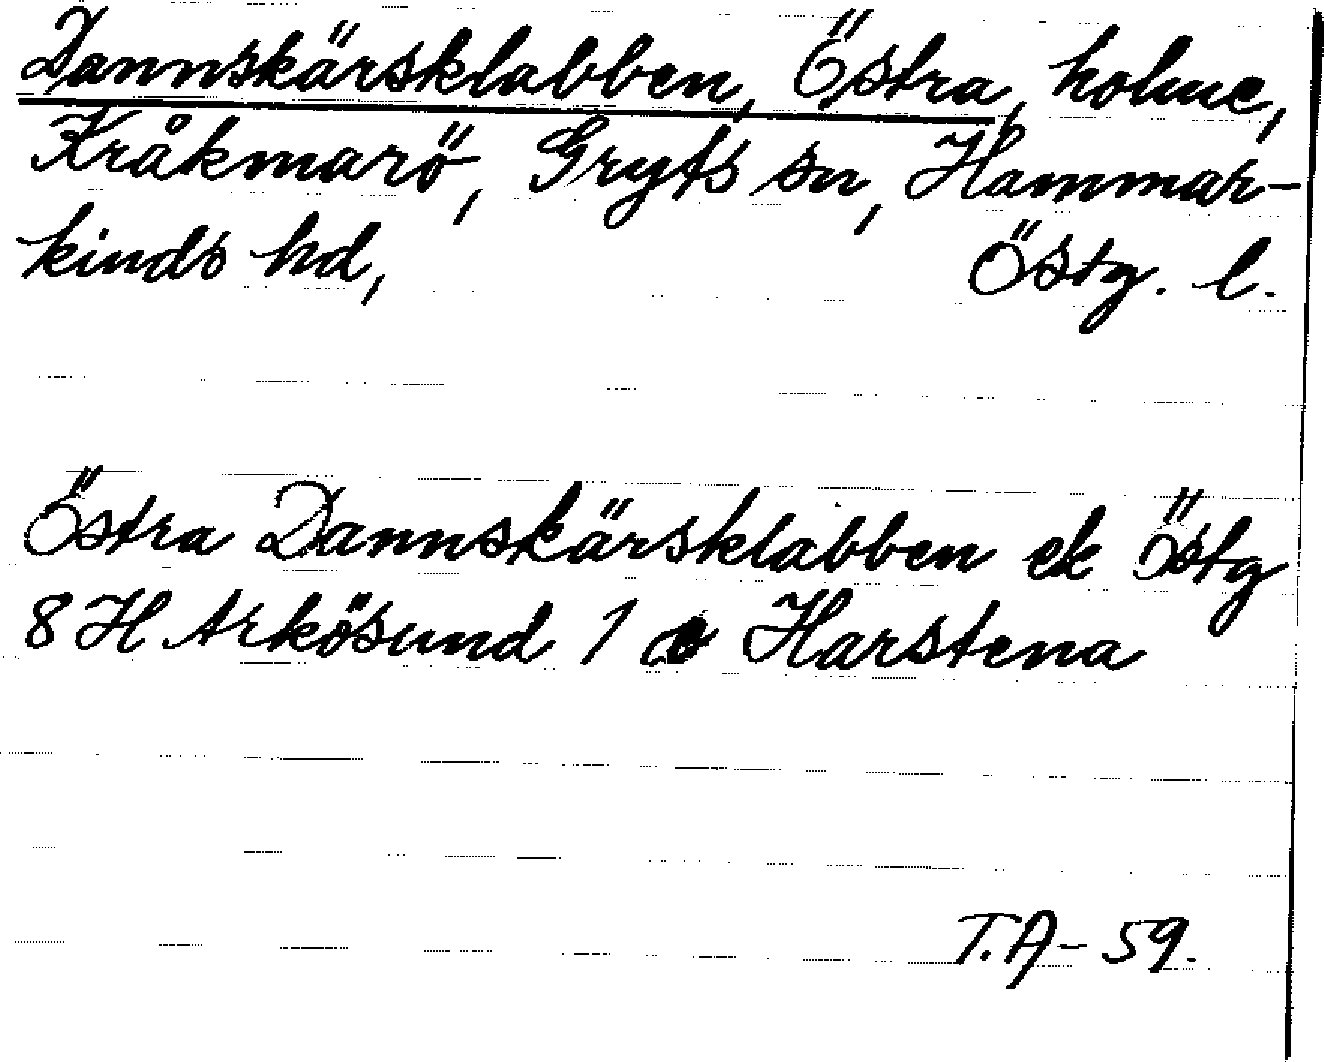 Dannskärsklabben, Östra, holme,
Kråkmarö, Gryts sn, Hammar-
kinds hd, Östg. l.
Östra Dannskärsklabben ek Östg
8 H Arkösund 1 c Harstena
T.A-59.